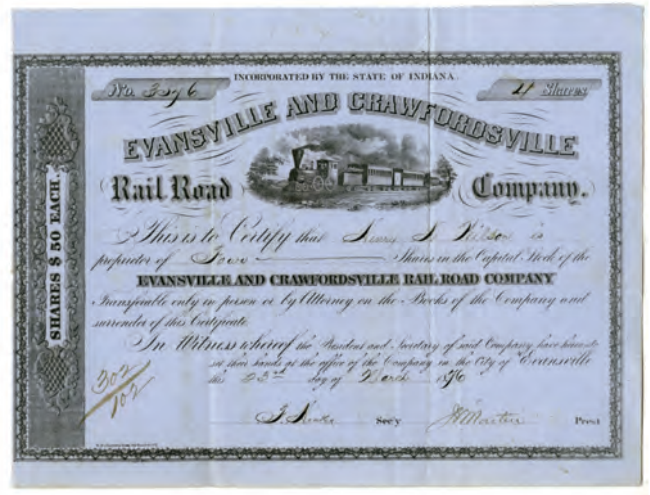 No. 3276
INCORPORATED BY THE STATE OF INDIANA.
4 Shares
EVANSVILLE AND CRAWFORDSVILLE
Rail Road Company.
SHARES $ 50 EACH.
This is to Certify that Henry Wilson is
proprietor of Four Shares in the Capital Stock of the
EVANSVILLE AND CRAWFORDSVILLE RAIL ROAD COMPANY
Transferable only in person or by Attorney on the Books of the Company and
surrender of this Certificate.
In Witness whereof the President and Secretary of said Company have hereunto
set their hands at the office of the Company in the City of Evansville
this 23rd day of March 1876
302
102
Sec'y
J Martin Prest